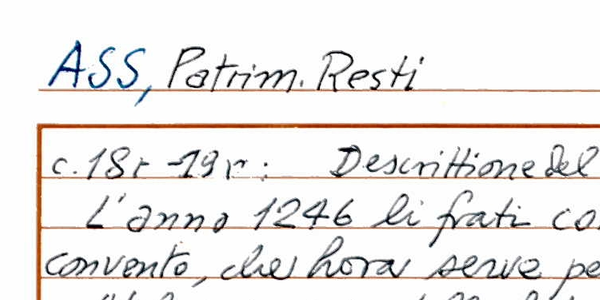 ASS, Patrim. Resti
c. 18r - 19r: Descrittione del
L'anno 1246 li frati co
convento, che hora serve pe